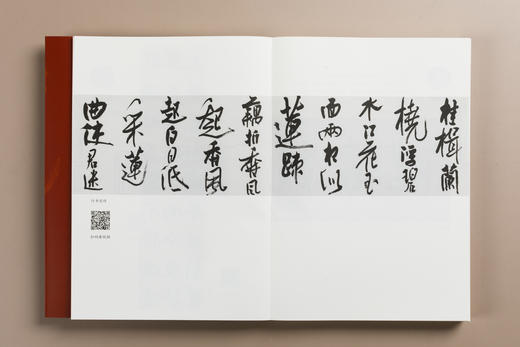 桂楫蘭
橈浮碧
水江花玉
面兩相似
蓮疎
藕折香風
起香風
起白日低
采蓮
曲使君迷
扫码看视频